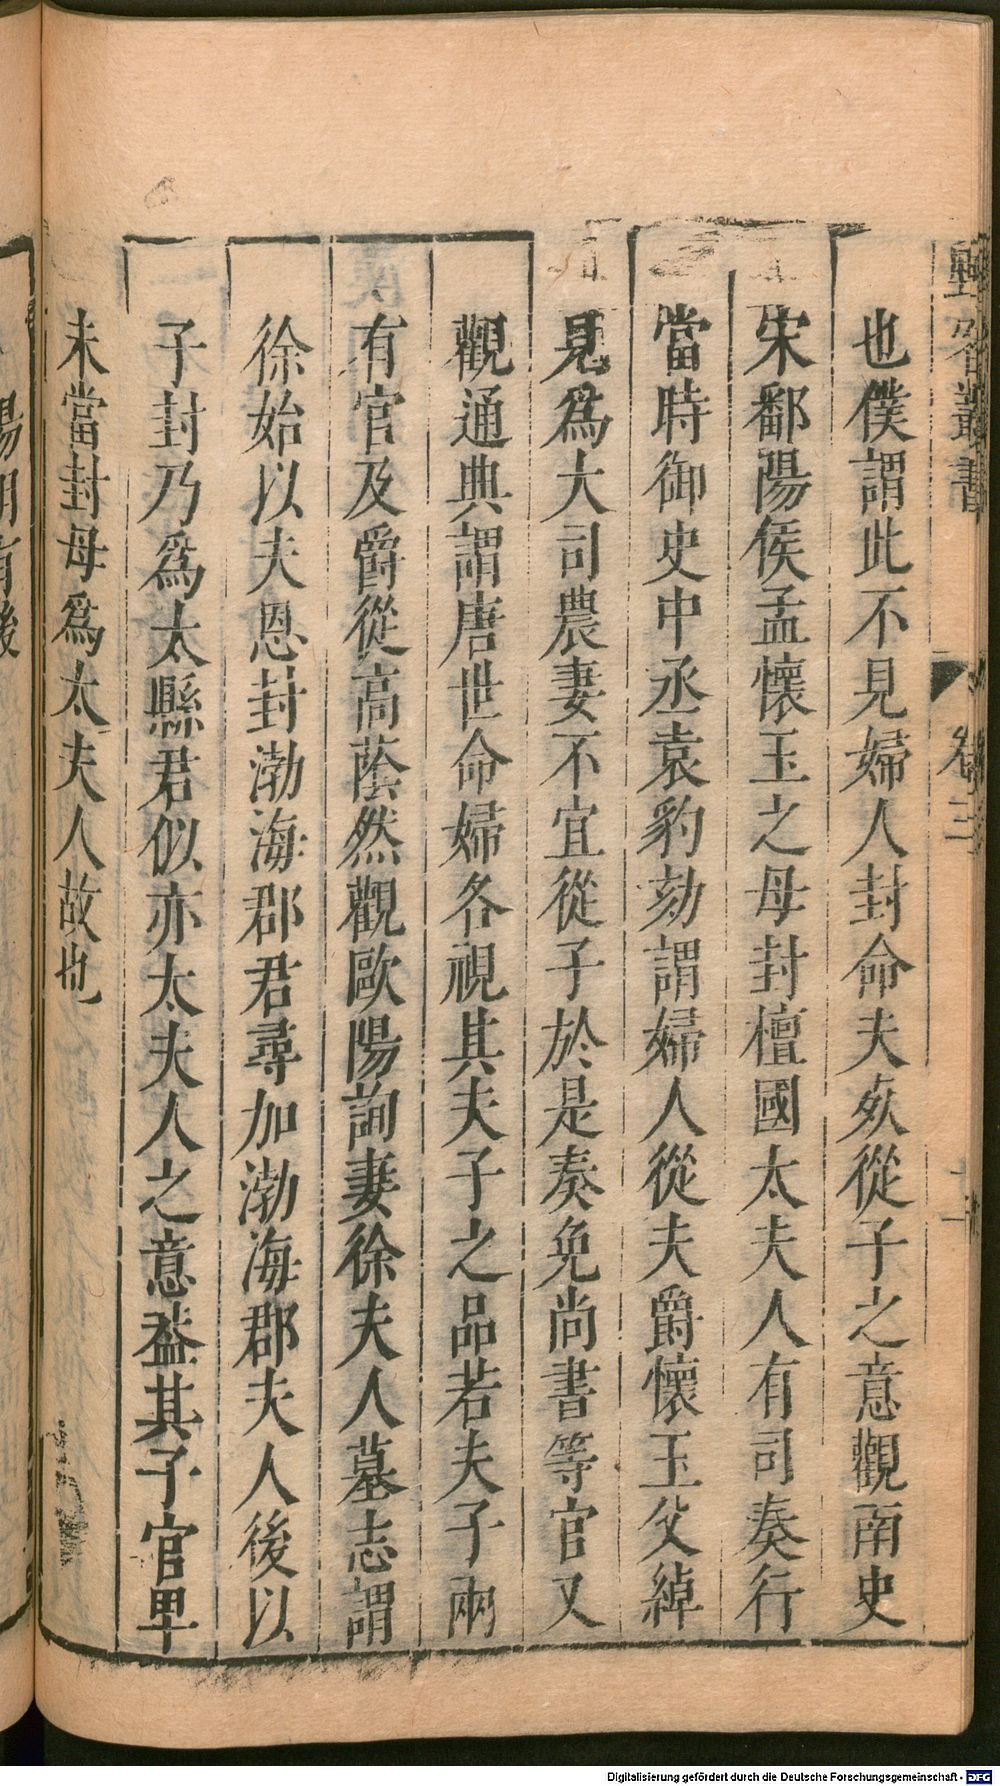 野客叢書
卷三
也僕謂此不見婦人封命夫歿從子之意觀南史
宋鄱陽侯孟懷玉之母封檀國太夫人有司奏行
當時御史中丞袁豹劾謂婦人從夫爵懷玉父綽
見爲大司農妻不宜從子於是奏免尚書等官又
觀通典謂唐世命婦各視其夫子之品若夫子兩
有官及爵從高蔭然觀歐陽詢妻徐夫人墓志謂
徐始以夫恩封渤海郡君尋加渤海郡夫人後以
子封乃爲太縣君似亦太夫人之意葢其子官卑
未當封母爲太夫人故也
Digitalisierung gefördert durch die Deutsche Forschungsgemeinschaft - DFG